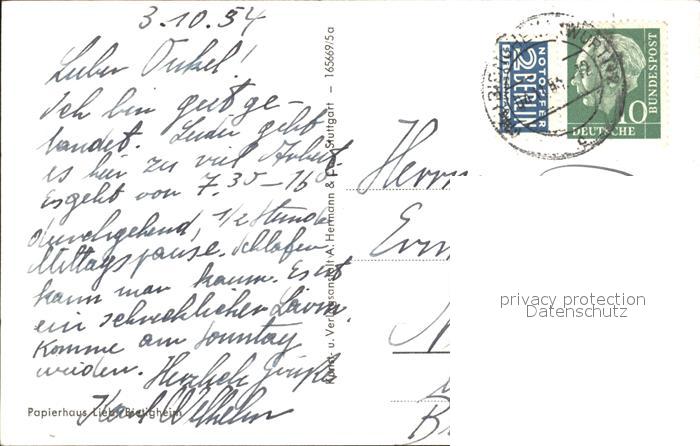 3.10.54
Lieber Onkel!
Ich bin gut ge-
landet. Leider geht
es hier zu viel Arbeit.
Es geht von 7.35-16
durchgehend, 1/2 Stunde
Mittagspause. Schlafen
kann man kaum. Es ist
ein schrecklicher Lärm.
Komme am Sonntag
wieder. Herzlich grüßt
Karl Wilhelm
Papierhaus Lieb, Bietigheim
Kunst- u. Verlagsanstalt A. Hermann & Co., Stuttgart — 165669/5a
NOTOPFER
2 BERLIN
STEUERMARKE
DEUTSCHE
BUNDESPOST
10
Herrn
privacy protection
Datenschutz